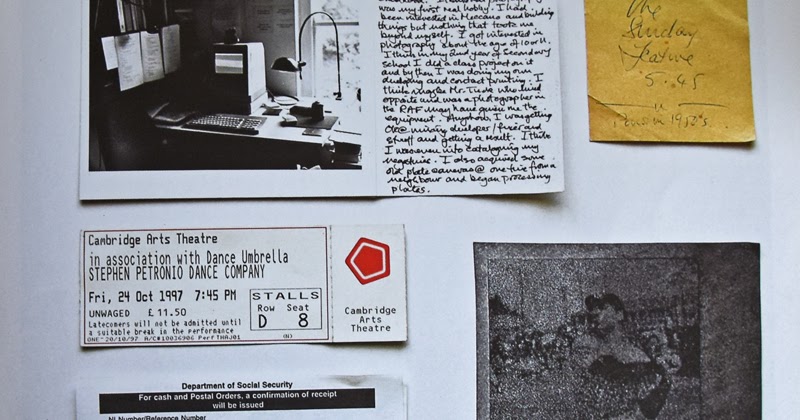 was my first real hobby. I had
been interested in Meccano and building
things but nothing that took me
beyond myself. I got interested in
photography about the age of 10 or 11.
I think in my 2nd year of Secondary
school I did a class project on it
and by then I was doing my own
developing and contact printing. I
think maybe Mr. who lived
opposite and was a photographer in
the RAF may have given me the
equipment. Anyhow, I was getting
developer / fixer and
stuff and getting a result. I think
I was even into cataloguing my
negatives. I also acquired some
old plate cameras @ one time from a
neighbour and began processing
plates.
The
Sunday
Feature
5.45
1950's
Cambridge Arts Theatre
in association with Dance Umbrella
STEPHEN PETRONIO DANCE COMPANY
Fri, 24 Oct 1997 7:45 PM
UNWAGED £11.50
Latecomers will not be admitted until
a suitable break in the performance
ONE 20/10/97 A/C#10036906 Perf THAJ01
STALLS
Row Seat
D 8
(N)
Cambridge
Arts
Theatre
Department of Social Security
For cash and Postal Orders, a confirmation of receipt
will be issued
NI Number/Reference Number